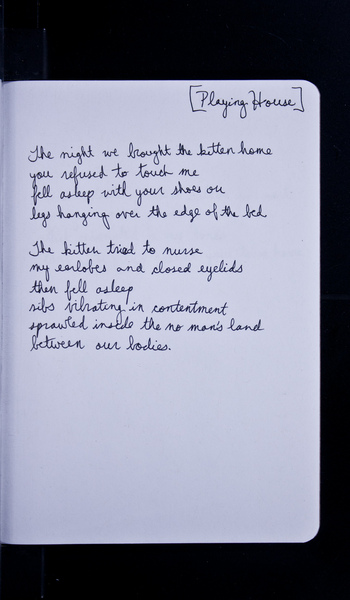 [Playing House]
The night we brought the kitten home
you refused to touch me
fell asleep with your shoes on
legs hanging over the edge of the bed
The kitten tried to nurse
my earlobes and closed eyelids
then fell asleep
ribs vibrating in contentment
sprawled inside the no man's land
between our bodies.